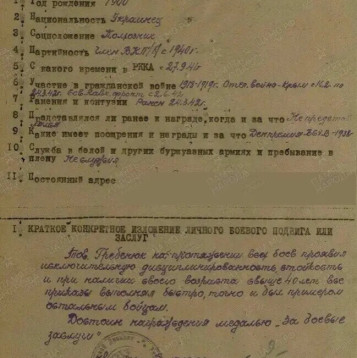 1. Год рождения 1900
2. Национальность Украинец
3. Соцположение Колхозник
4. Партийность Член ВКП/б/ с 1940 г.
5. С какого времени в РККА с 27.9.41г
6. Участие в гражданской войне 1918-1919г. Отеч. война-Крым с
7. Ранения и контузии Ранен 24.3.42г.
8. Представлялся ли ранее к награде, когда и за что Не представ
лялся
9. Какие имеет поощрения и награды и за что
10. Служба в белой и других буржуазных армиях и пребывание в
плену Не служил
11. Постоянный адрес
I. КРАТКОЕ КОНКРЕТНОЕ ИЗЛОЖЕНИЕ ЛИЧНОГО БОЕВОГО ПОДВИГА ИЛИ
ЗАСЛУГ
Тов. Гребенюк на протяжении всех боев проявил
исключительную дисциплинированность, стойкость
и при наличии своего возраста свыше 40 лет все
приказы выполнял быстро, точно и был примером
остальным бойцам.
Достоин награждения медалью „За боевые
заслуги"